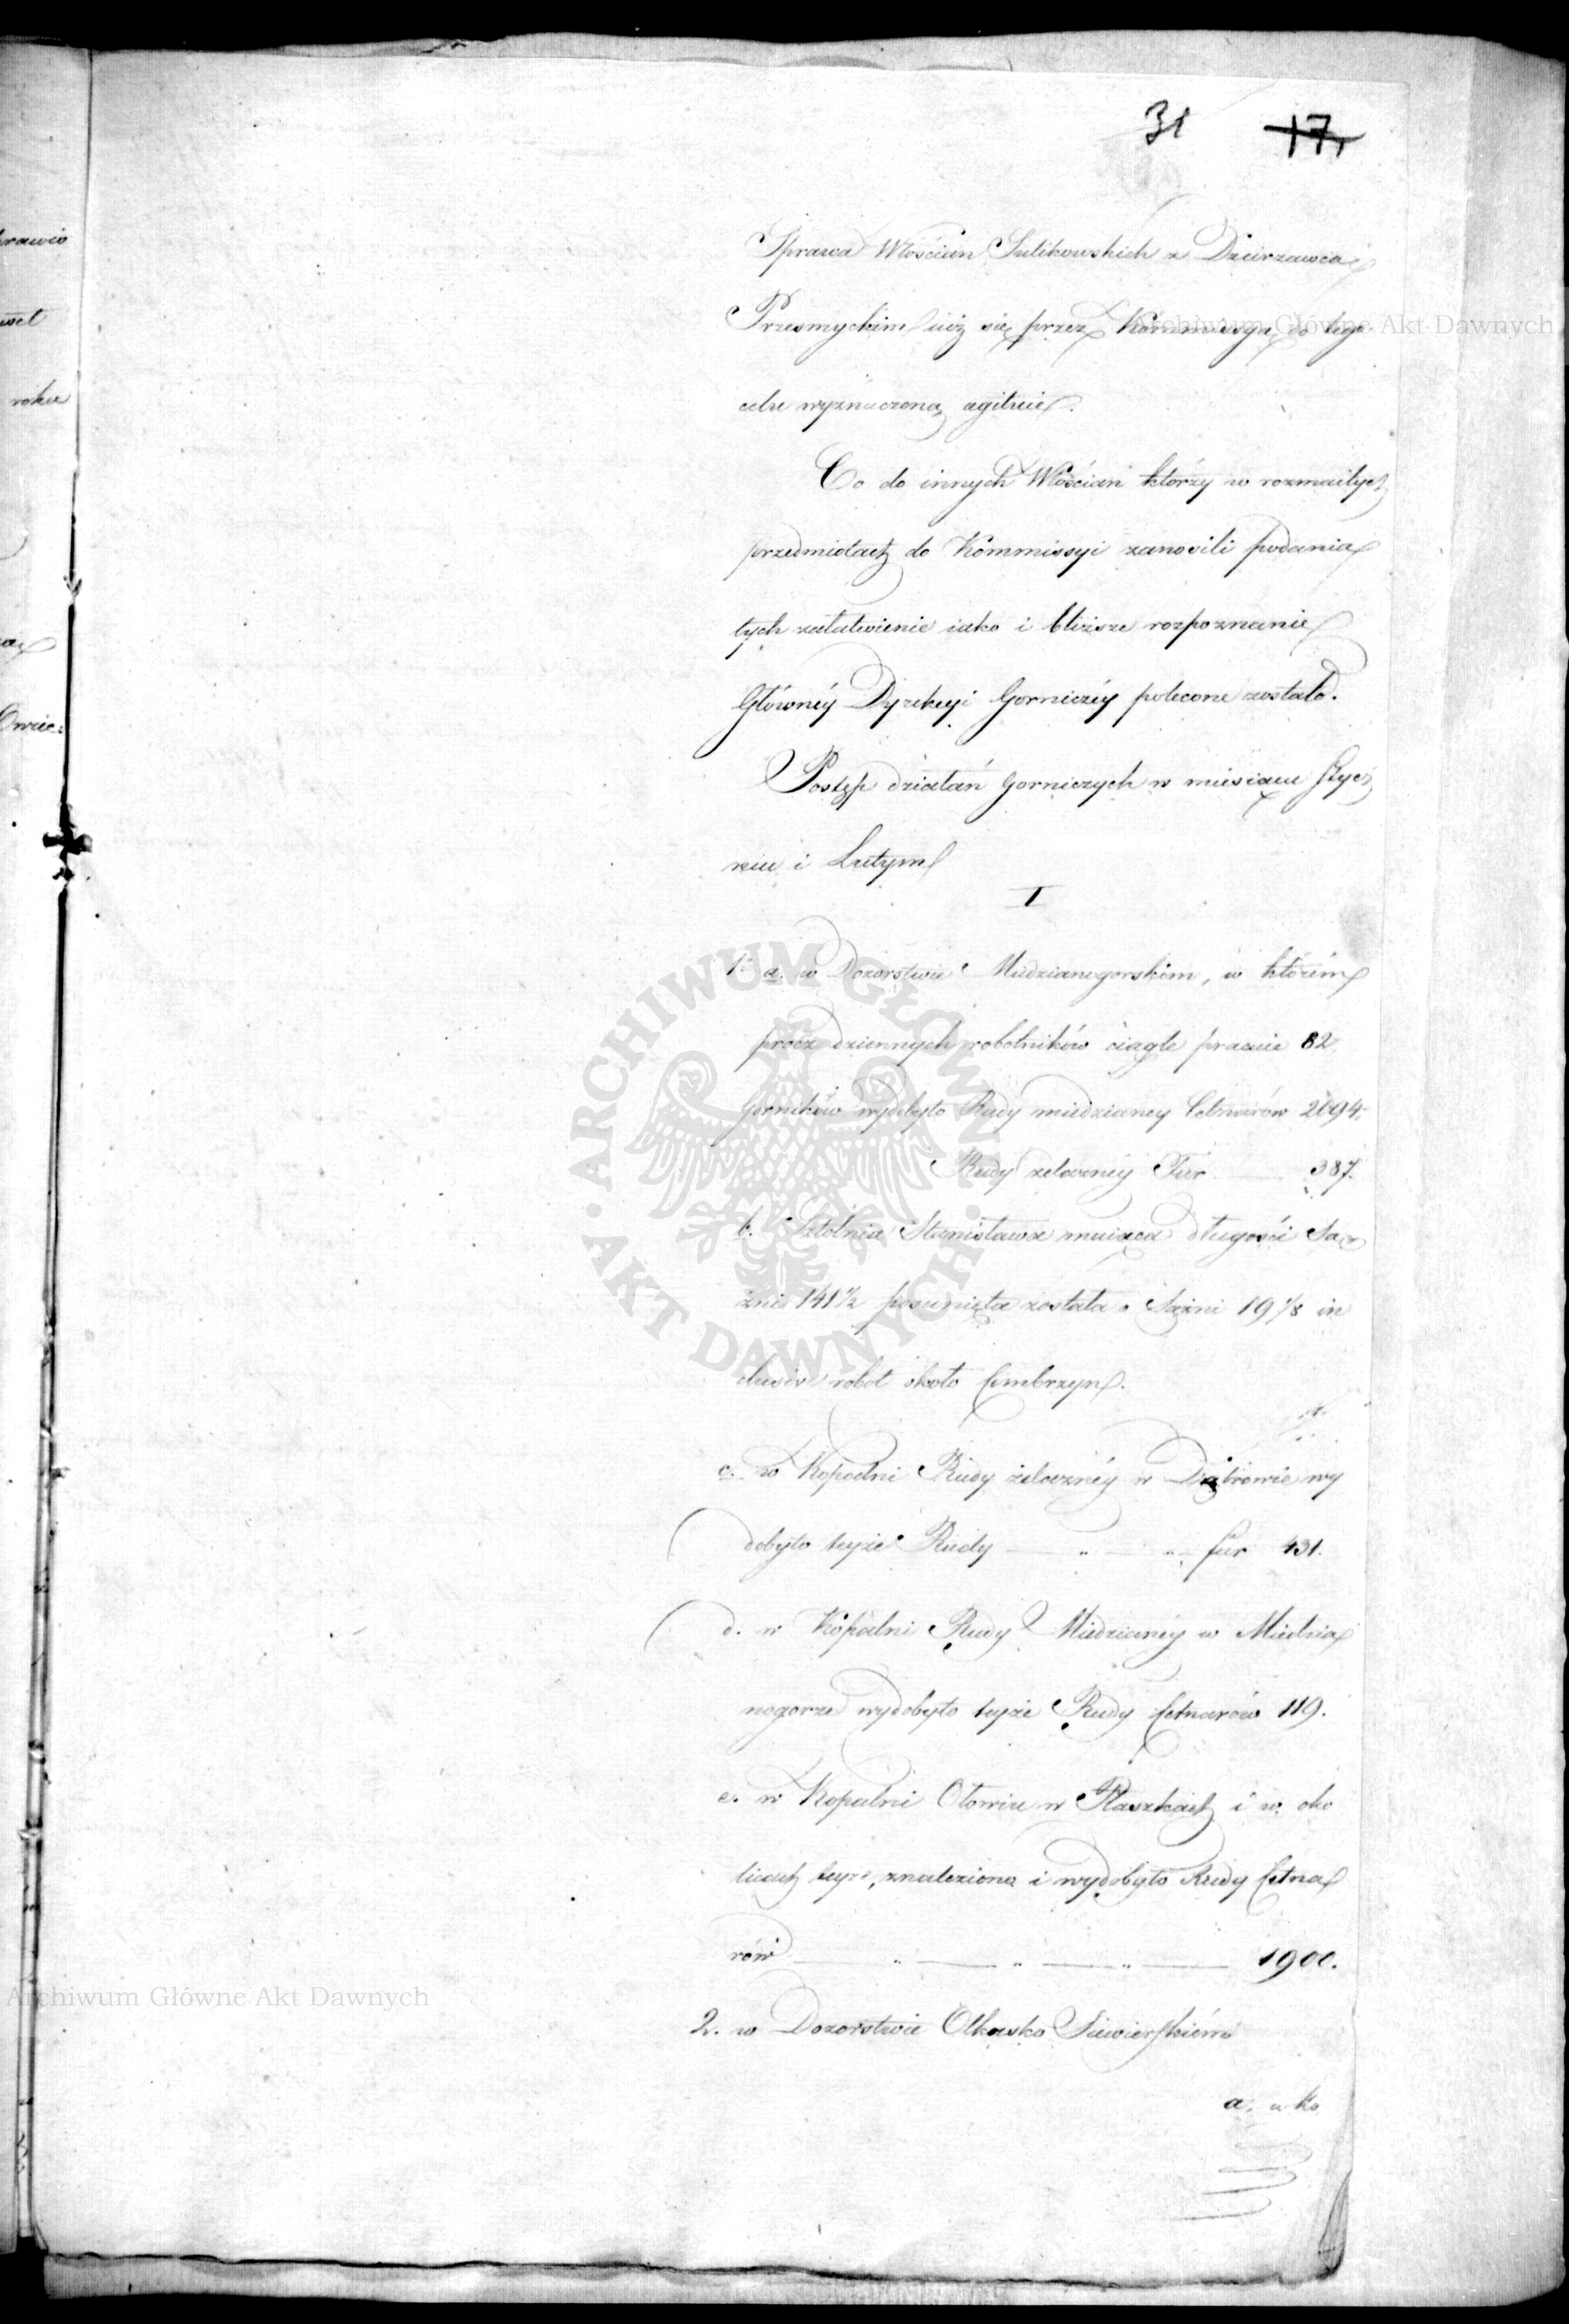 31 17,
Sprawa Włościan Sulikowskich z Dzierzawcą
Przesmyckim iuż się przez Kommissyą do tego
celu wyznaczoną agituie.
Co do innych Włościan którzy w rozmaitych
przedmiotach do Kommissyi zanosili podania
tych załatwienie iako i bliższe rozpoznanie
Główney Dyrekcyi Gorniczéy polecone zostało.
Postęp działań Gorniczych w miesiącu Stycz
niu i Lutym
I
1. a. w Dozorstwie Miedzianogorskim, w którém
prócz dziennych robotników ciągle pracuie 82
Gorników wydobyto Rudy miedzianey Cetnarów 2094.
Rudy żelazney Fur 387.
b. Sztolnia Stanisława maiąca długości Są
żni 141 1/2 posunięta została o Sążni 19 1/8 in
clusive robot około Cembrzyn.
c. w Kopalni Rudy żelaznéy w Dąbrowie wy
dobyto teyże Rudy " " fur 431.
d. w Kopalni Rudy Miedzianéy w Miedzia
nogorze wydobyto teyże Rudy Cetnarów 119.
e. w Kopalni Ołowiu w Płaszkach i w oko
licach teyże, znaleziono i wydobyto Rudy Cetna
rów " " " 1900.
2. w Dozorstwie Olkusko Siewierskiém
a. w Ko
rawio
roku
Owiec:
Archiwum Główne Akt Dawnych
Archiwum Główne Akt Dawnych
ARCHIWUM GŁÓWNE · AKT DAWNYCH ·